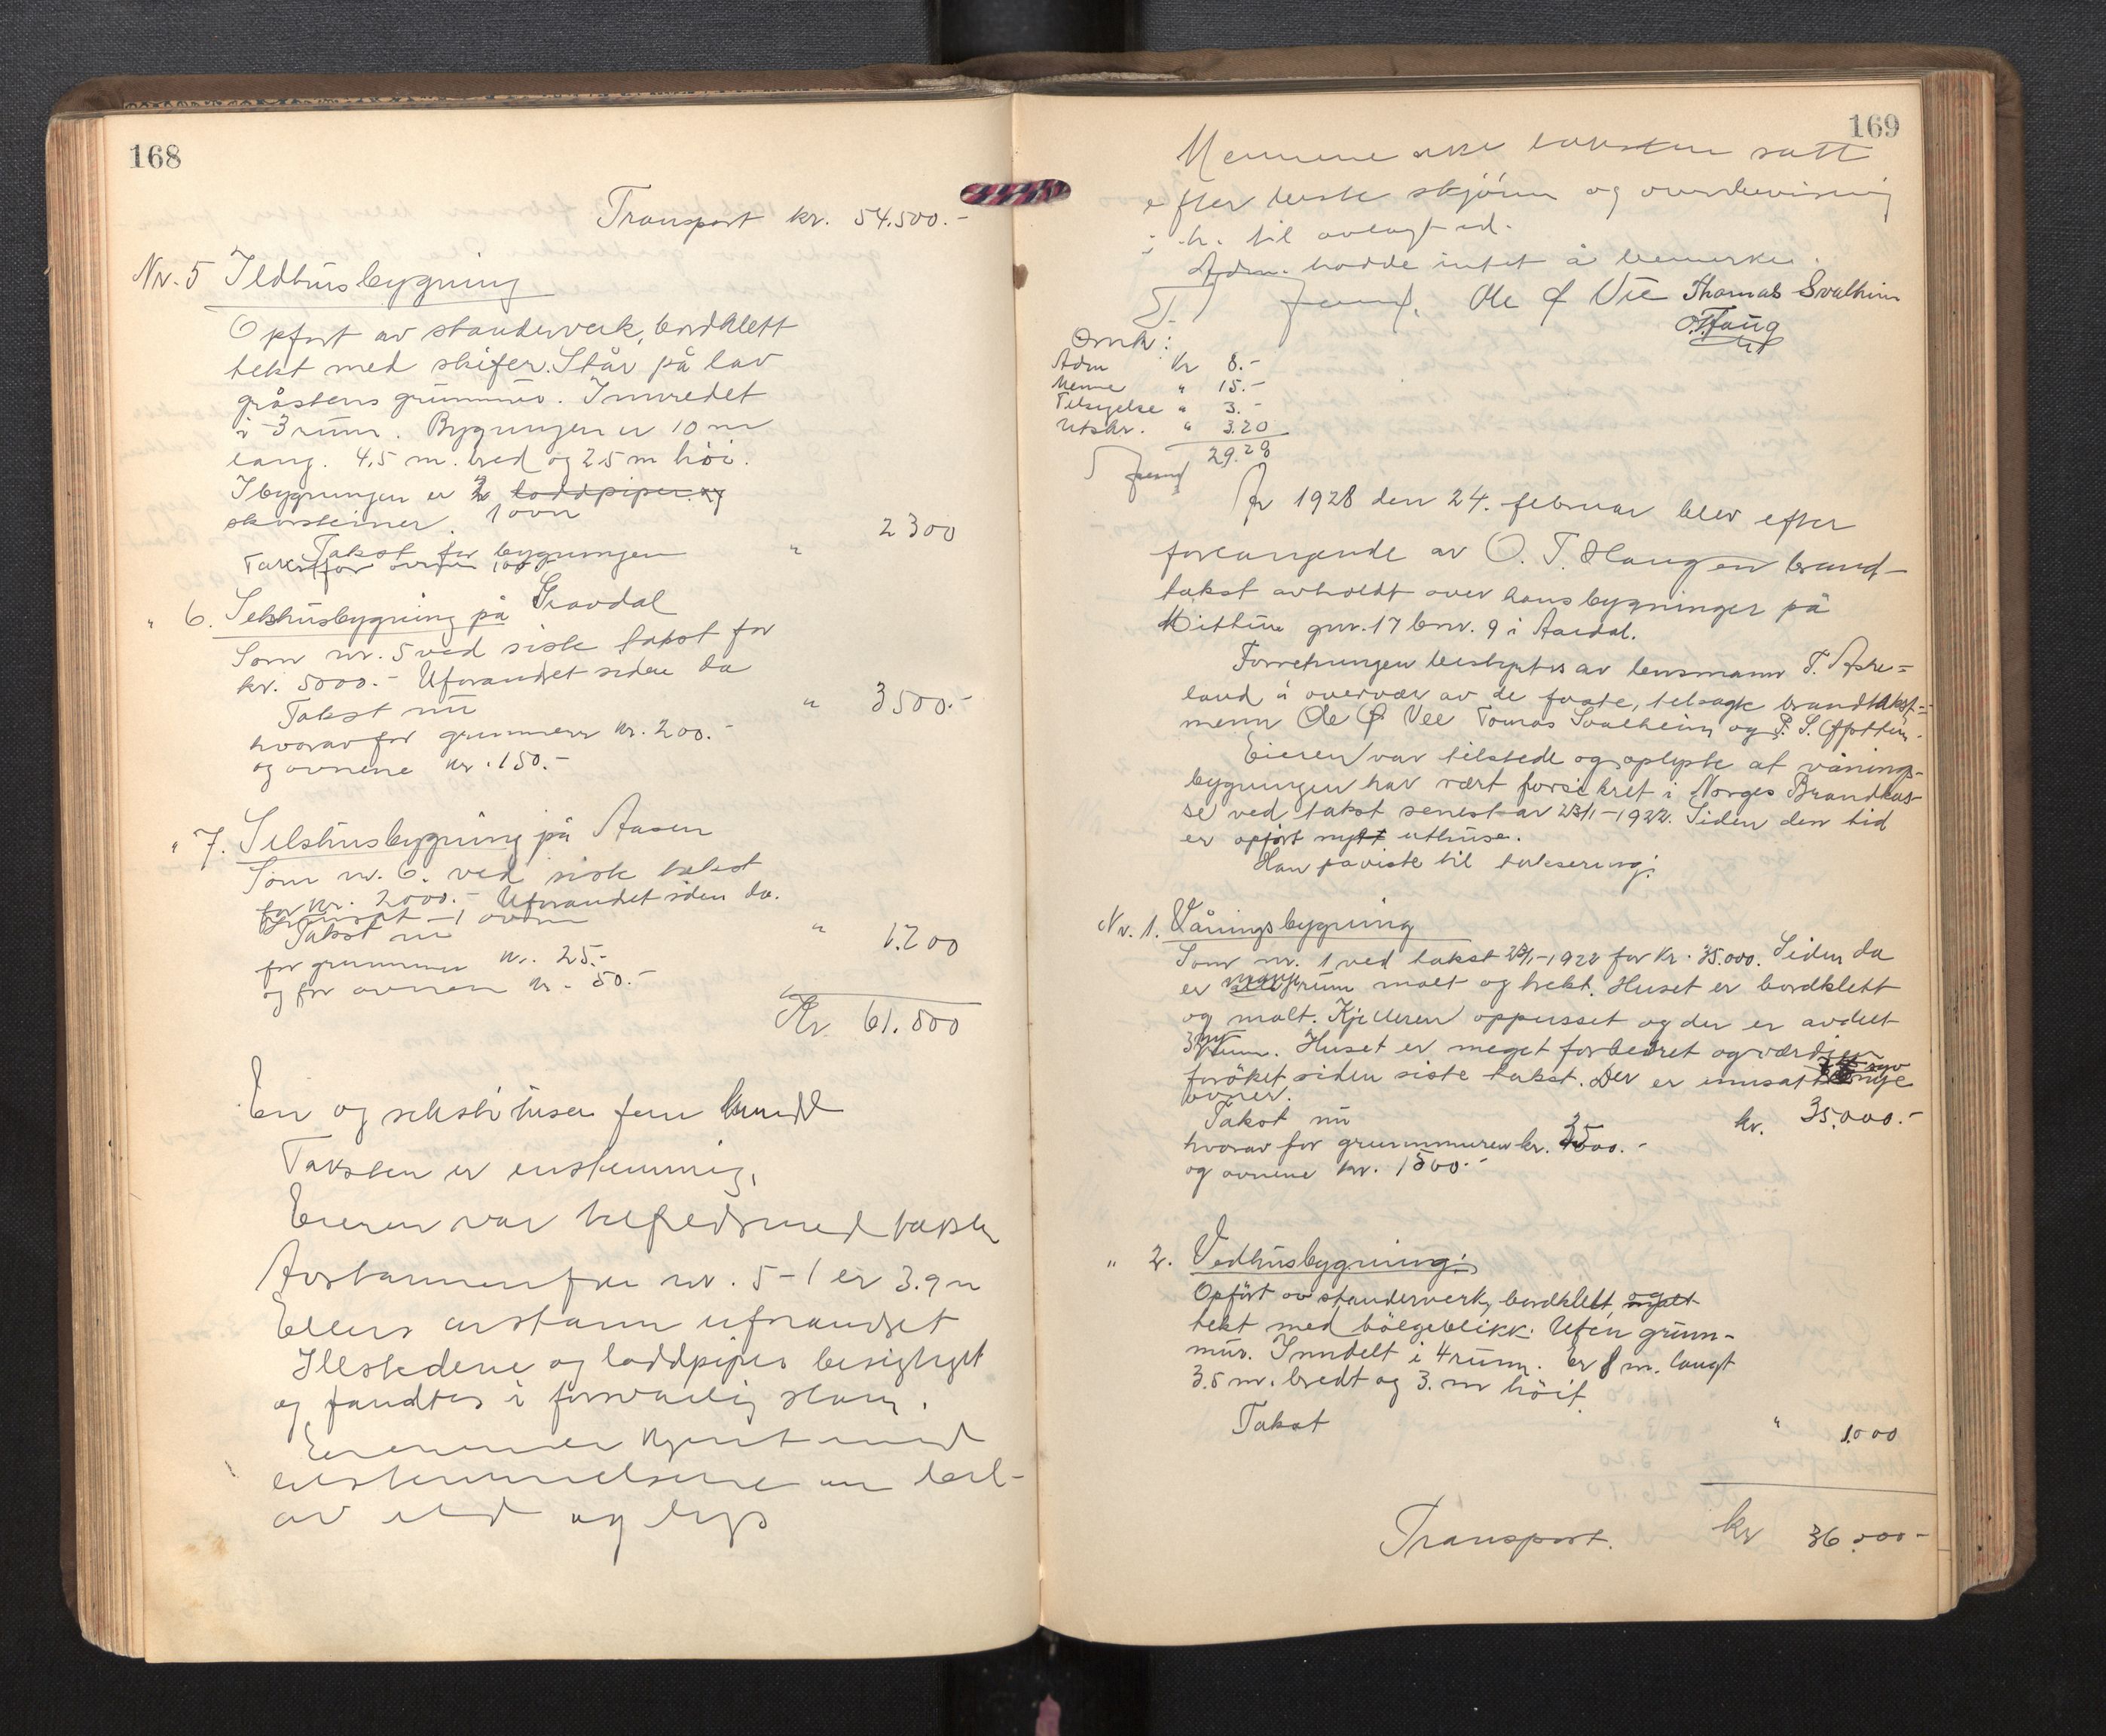 168
Transport kr. 54.500.-
Nr. 5 Ildhusbygning
Opført av standerverk, bordklett
tekt med skifer. Står på lav
gråstens grunnmur. Innredet
i 3 rum. Bygningen er 10 m
lang. 4,5 m. bred og 2.5 m høi.
I bygningen er 2 loddpiper og
skorsteiner. 1 ovn
Takst for bygningen " 2300
Takst for ovnen 100
" 6. Selshusbygning på Gravdal
Som nr. 5 ved siste takst for
kr. 5000.- Uforandret siden da
Takst nu " 3500.-
hvorav for grunnmur kr. 200.-
og ovnene kr. 150.-
" 7. Selshusbygning på Aasen
Som nr. 6. ved siste takst
for kr. 2000.- Uforandret siden da.
1 ovn
Takst nu " 1.200
for grunnmur kr. 25.-
og for ovnen kr. 50.-
Kr 61.500
En og seksti tusen fem hundre
Taksten er enstemmig.
Eieren var tilfreds med taksten
Avstannen fra nr. 5-1 er 3.9 m
Ellers avstann uforandret
Illstedene og loddpiper besigtiget
og fandtes i forsvarlig stann.
Eieren kjent med
bestemmelsene om
av ild og lys
169
Mennene taksten satt
efter beste skjönn og overbevisning
i h. til avlagt ed.
Adm. hadde intet å bemerke.
Ole Ø Vee Thomas Svalheim
Omk:
Adm Kr 8.-
Menne " 15.-
Tilsigelse " 3.-
Utskr. " 3.20
29.20
År 1928 den 24. februar blev efter
forlangende av O. T. Haugen brand-
takst avholdt over hans bygninger på
Mitthun gnr. 17 bnr. 9 i Aardal.
Forretningen bestyrtes av lensmann T. Aske-
land i overvær av de faste, tilsagte brandtakst-
menn Ole Ø Vee Tomas Svalheim og P. S. Ofptun.
Eieren var tilstede og oplyste at vånings-
bygningen har vært forsikret i Norges Brandkas-
se ved takst senest av 23/1-1922. Siden den tid
er opført nytt uthuse.
Han påviste til taksering:
Nr. 1. Våningsbygning
Som nr. 1 ved takst 23/1-1922 for kr. 35.000. Siden da
er rum malt og trekt. Huset er bordklett
og malt. Kjelleren oppusset og der er avdelt
3 nye rum. Huset er meget forbedret og værdien
forøket siden siste takst. Der er innsatt syv nye
ovner.
Takst nu kr. 35.000.-
hvorav for grunnmuren kr. 2500.-
og ovnene kr. 1500.-
" 2. Vedhusbygning:
Opført av standerverk, bordklett, og malt
tekt med bölgeblikk. Uten grunn-
mur. Inndelt i 4 rum. Er 8 m. langt
3.5 m. bredt og 3. m höit.
Takst " 1.000
Transport. kr 36.000-